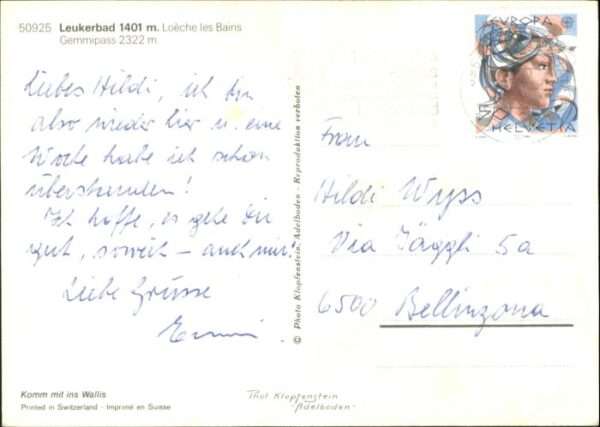 50925 Leukerbad 1401 m. Loèche les Bains
Gemmipass 2322 m
Liebes Hildi, ich bin
also wieder hier u. eine
Woche habe ich schon
überstanden!
Ich hoffe, es gehe Dir
gut, soweit – auch mir!
Liebe Grüsse
Emmi.
© Photo Klopfenstein, Adelboden - Reproduktion verboten
EUROPA
50
HELVETIA
Frau
Hildi Wyss
Via Jäggli 5a
6500 Bellinzona
Komm mit ins Wallis
Printed in Switzerland - Imprimé en Suisse
Klopfenstein
"Adelboden"